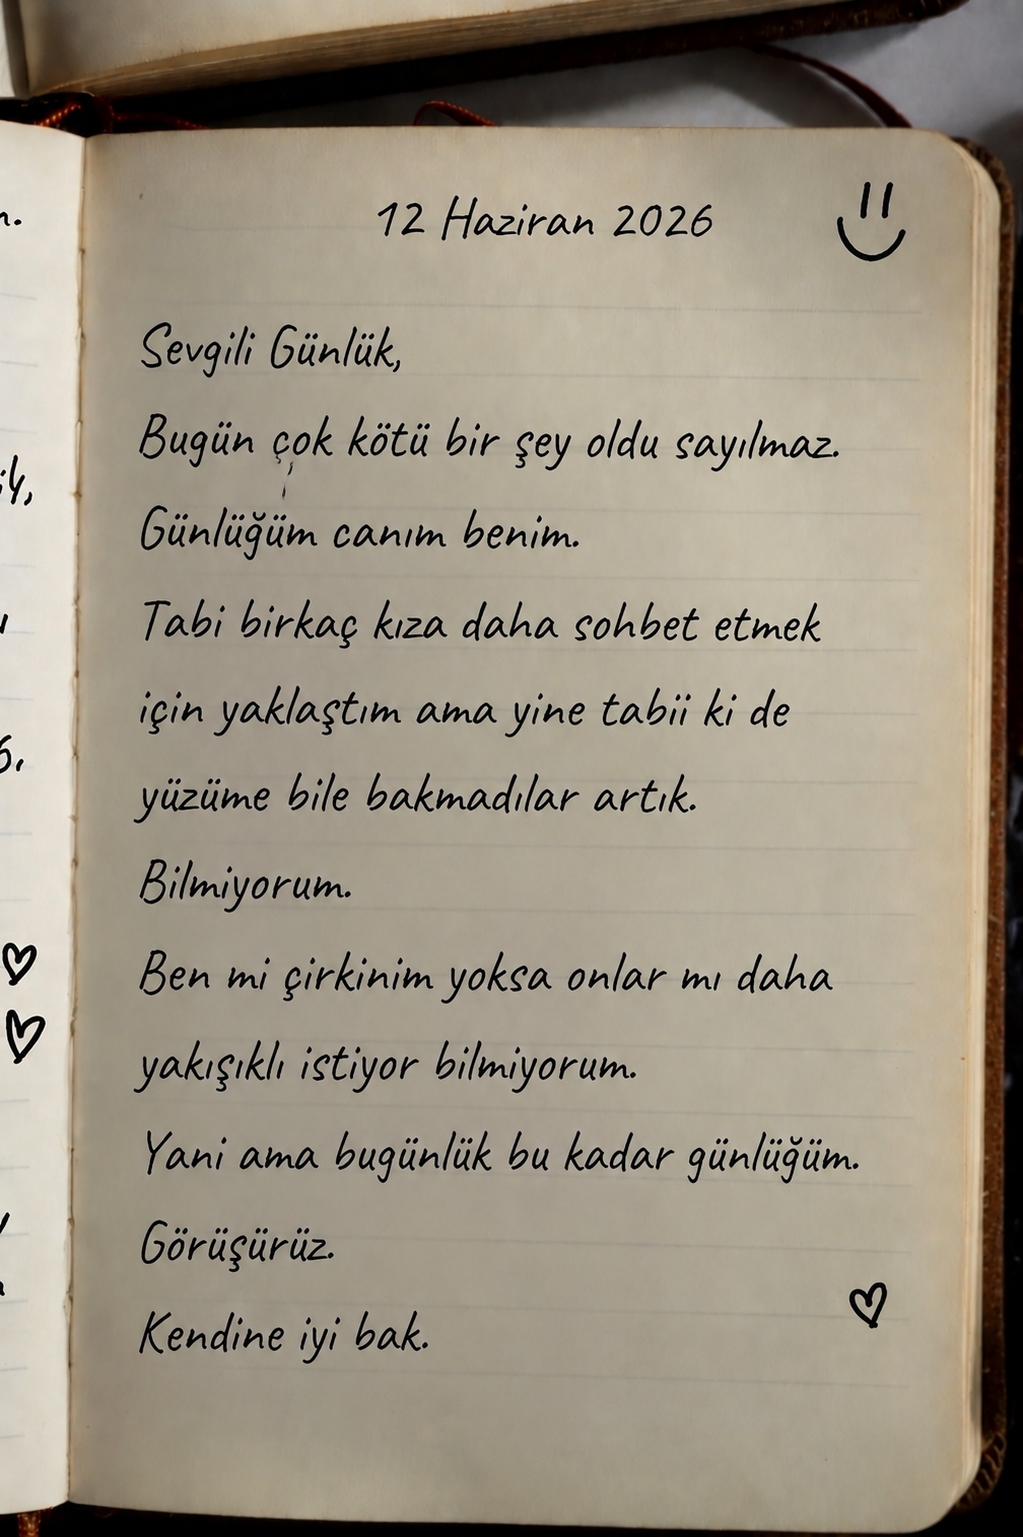 12 Haziran 2026
Sevgili Günlük,
Bugün çok kötü bir şey oldu sayılmaz.
Günlüğüm canım benim.
Tabi birkaç kıza daha sohbet etmek
için yaklaştım ama yine tabii ki de
yüzüme bile bakmadılar artık.
Bilmiyorum.
Ben mi çirkinim yoksa onlar mı daha
yakışıklı istiyor bilmiyorum.
Yani ama bugünlük bu kadar günlüğüm.
Görüşürüz.
Kendine iyi bak.